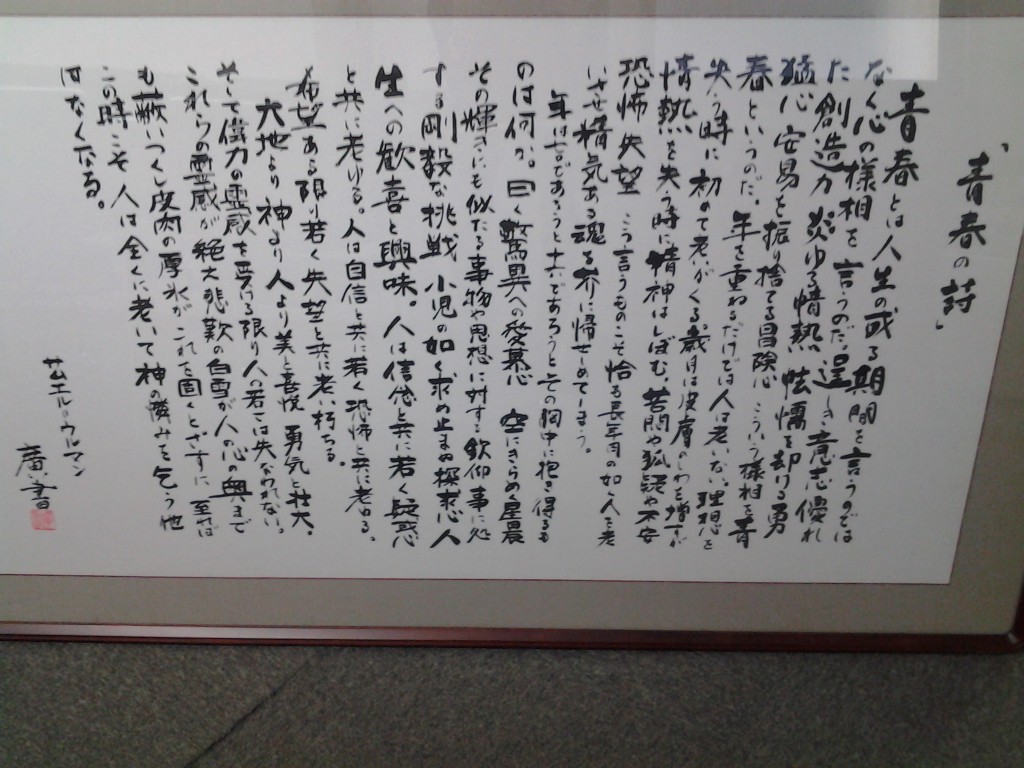 「青春の詩」
青春とは人生の或る期間を言うのでは
なく心の様相を言うのだ。逞しき意志優れ
た創造力炎ゆる情熱怯懦を却ける勇
猛心安易を振り捨てる冒険心こういう様相を青
春というのだ。年を重ねるだけでは人は老いない。理想を
失う時に初めて老がくる歳月は皮膚のしわを増すが
情熱を失う時に精神はしぼむ。苦悶や狐疑や不安
恐怖失望こう言うものこそ恰も長年月の如く人を老
いさせ精気ある魂を芥に帰せしめてしまう。
年は七十であろうと十六であろうとその胸中に抱き得るも
のは何か。曰く驚異への愛慕心空にきらめく星晨
その輝きにも似たる事物や思想に対する欽仰事に処
する剛毅な挑戦小児の如く求め止まぬ探求心人
生への歓喜と興味。人は信念と共に若く疑惑
と共に老ゆる。人は自信と共に若く恐怖と共に老ゆる。
希望ある限り若く失望と共に老い朽ちる。
大地より神より人より美と喜悦勇気と壮大。
そして偉力の霊感を受ける限り人の若さは失なわれない。
これらの霊感が絶え悲歎の白雪が人の心の奥まで
も蔽いつくし皮肉の厚氷がこれを固くとざすに至れば
この時こそ人は全くに老いて神の憐みを乞う他
何なくなる。
サムエル・ウルマン
廣書